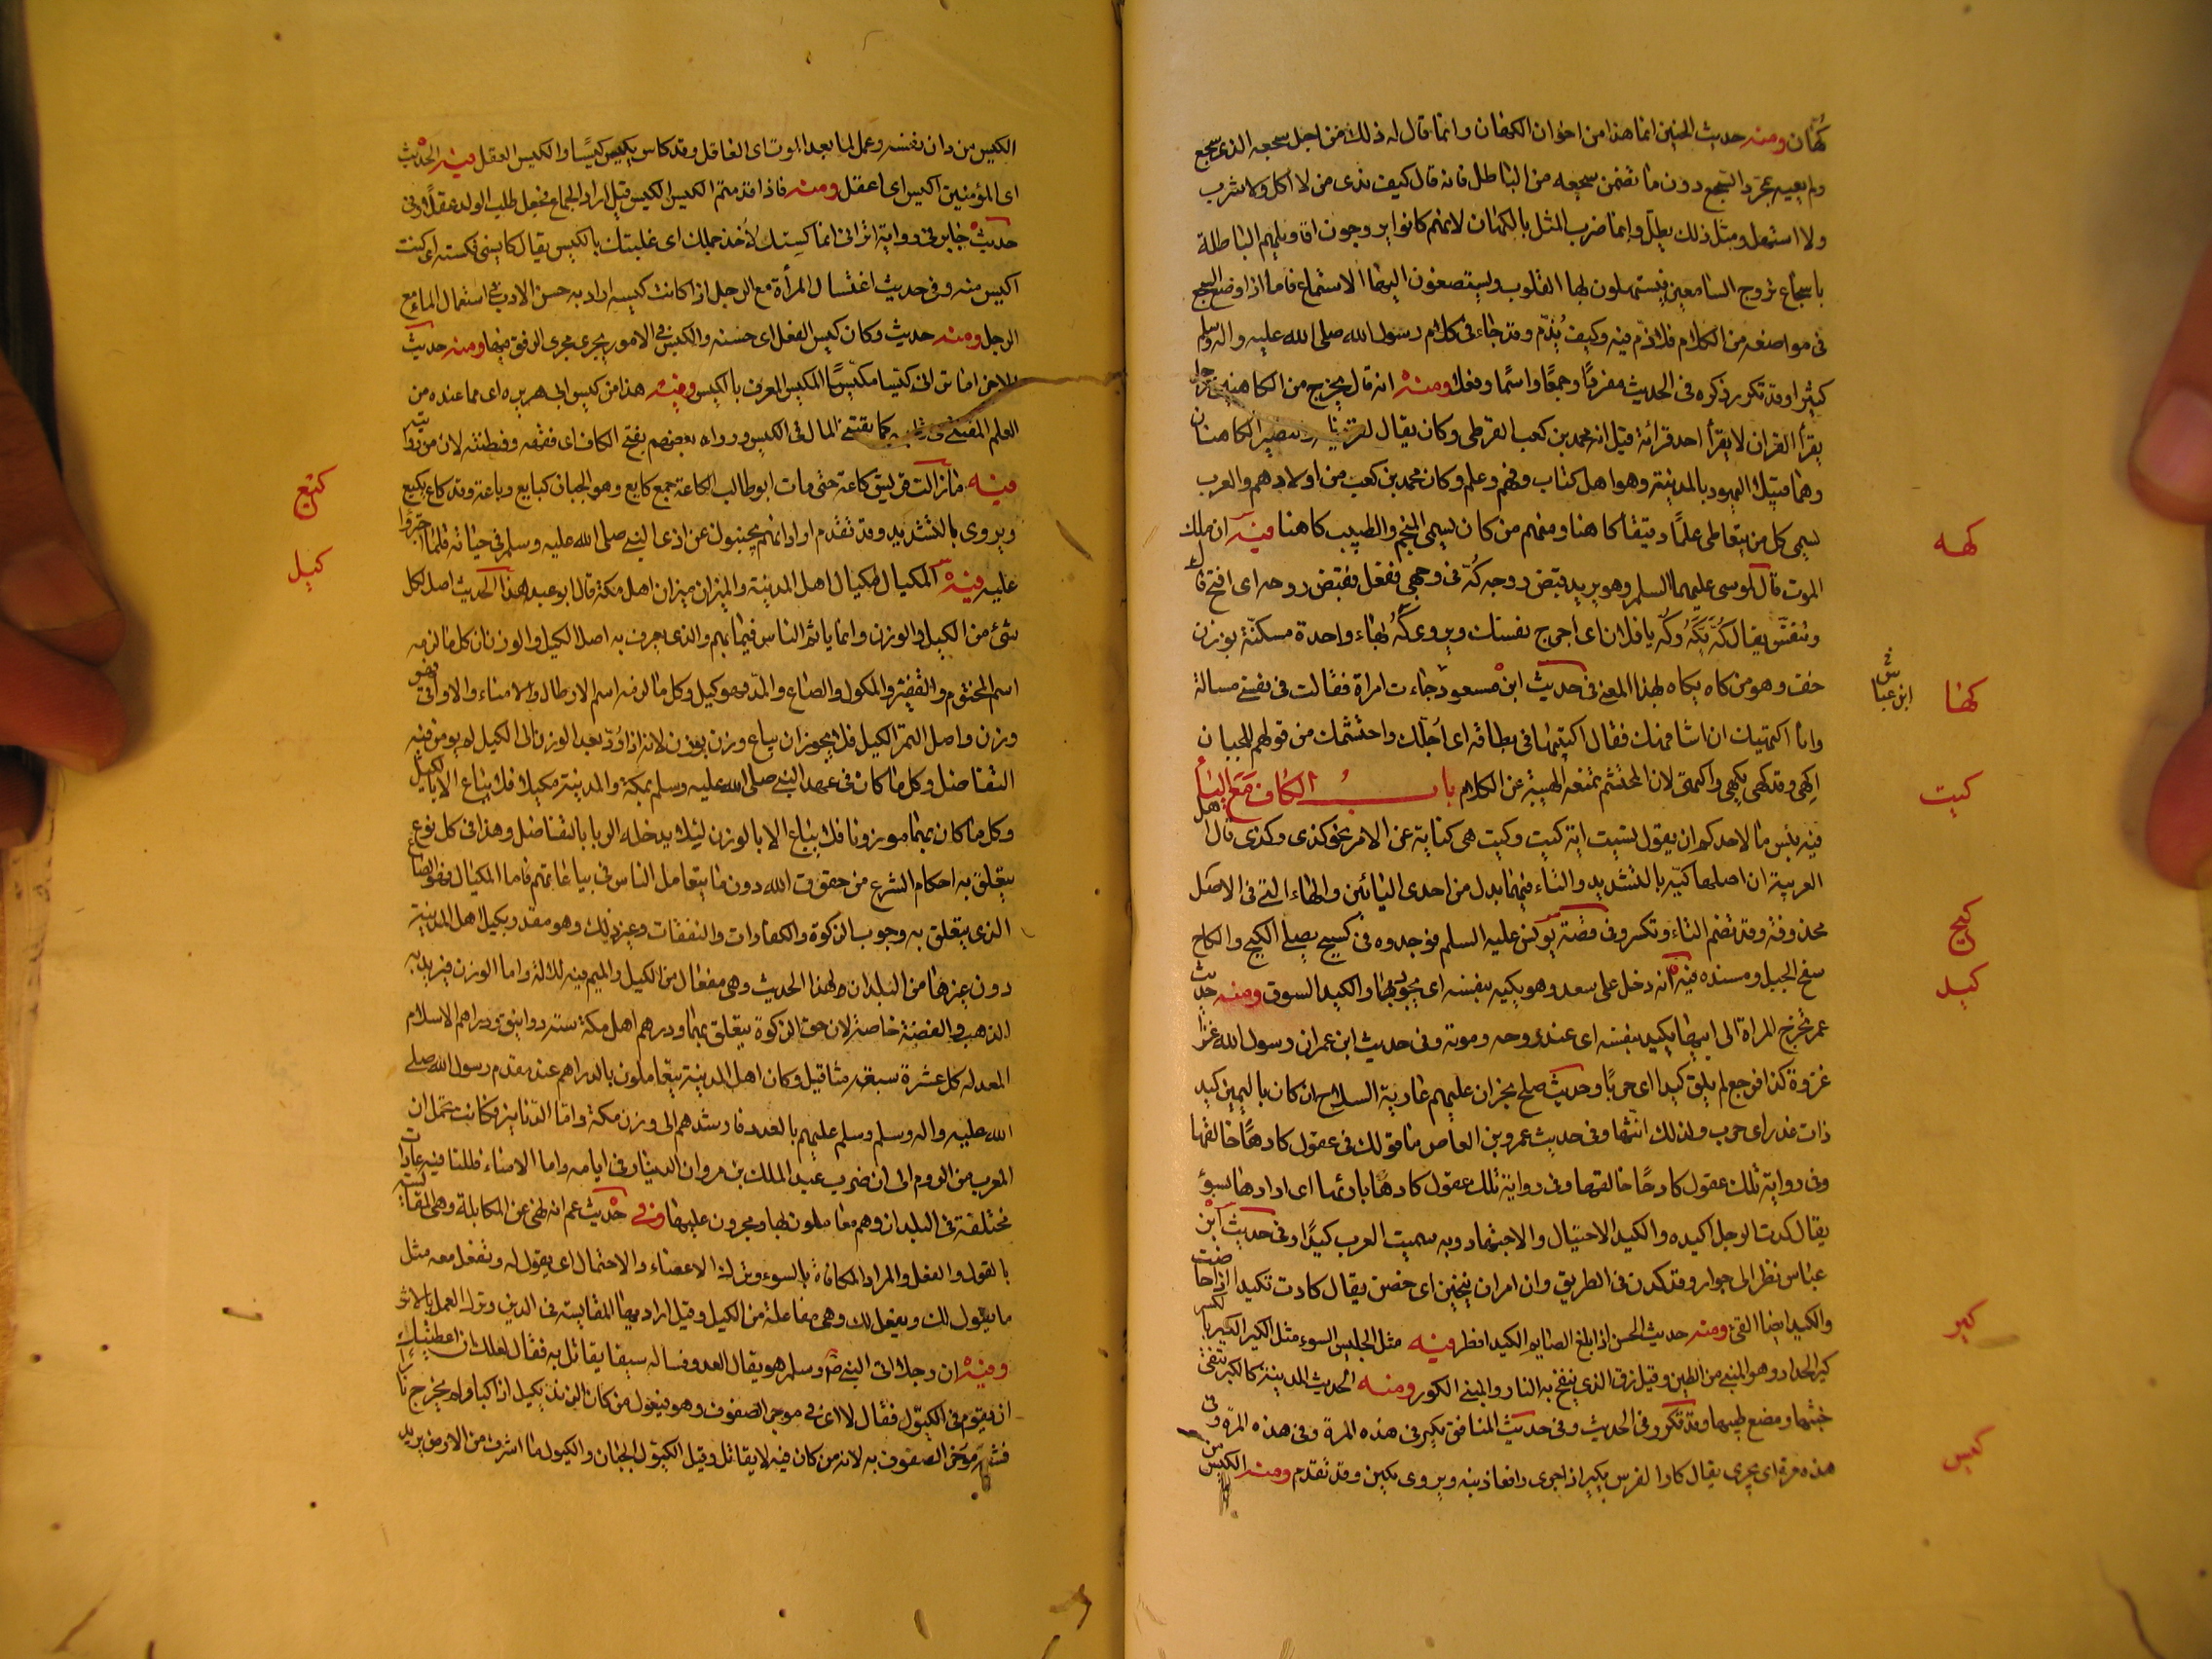 كهّان ومنه حديث الجنين انما هذا من اخوان الكهان وانما قال له ذلك من اجل سجعه الذي سجع
ولم يعبه بمجرد السجع دون ما تضمن سجعه من الباطل فانه قال كيف ندى من لا اكل ولا شرب
ولا استهل ومثل ذلك يطل وانما ضرب المثل بالكهان لانهم كانوا يروجون اقاويلهم الباطلة
باسجاع تروج السامعين فيستميلون بها القلوب ويستصغون اليها الاستماع فاما اذا وضع السجع
في مواضعه من الكلام فلا ذم فيه وكيف يُذمّ وقد جاء في كلام رسول الله صلى الله عليه واله وسلم
كثيرا وقد تكرر ذكره في الحديث مفردًا وجمعًا واسمًا وفعلا ومنه انه قال يخرج من الكاهنين رجل
يقرأ القران لا يقرأ احد قرائة قيل انه محمد بن كعب القرظي وكان يقال لقريظة والنضير الكاهنان
وهما قبيلا اليهود بالمدينة وهو اهل كتاب وفهم وعلم وكان محمد بن كعب من اولادهم والعرب
يسمى كل من يتعاطى علمًا دقيقًا كاهنا ومنهم من كان يسمى المنجم والطبيب كاهنا
كهه
فيه ان ملك
الموت قال لموسى عليهما السلم وهو يريد قبض روحه كُهّ في وجهي ففعل فقبض روحه اى افتح فاك
وتنفسّ يقال كُهّ يَكَهُّ وكُه يا فلان اى اخرج نفسك ويروى كَهْ بهاء واحدة مسكنة بوزن
خف وهو من كاه يكاه بهذا المعنى
كها
في حديث ابن مسعود جاءت امراة فقالت في نفسي مسالة
في ابن عباس
وانا اكتهيك ان اشافهك فقال اكتبيها في بطاقه اى اُجلّك واحتشمك من قولهم للجبان
اكهى وقد كهى يكهى واكتهى لان المحتشم تمنعه الهيبة عن الكلام باب الكاف مع الياء
كيت
فيه بئس ما لاحدكم ان يقول نسيت اية كيت وكيت هى كناية عن الامر نحو كذى وكذى قال اهل
العربية ان اصلها كيّه بالتشديد والتاء فيهما بدل من احدى اليائين والهاء التي في الاصل
محذوفة وقد تضم التاء وتكسر
كيح
وفي قصة يونس عليه السلم فوجدوه في كيح يصلى الكيح والكاح
سفح الجبل ومسنده
كيد
فيه انه دخل على سعد وهو يكيد بنفسه اى يجود بها والكيد السوق ومنه حديث
عمر تخرج المراة الى ابيها يكيد بنفسه اى عند روحه وموته وفي حديث ابن عمر ان رسول الله غزا
غزوة كذا فرجع لم يلق كيدا اى حربًا وحديث صلح نجران عليهم عارية السلاح ان كان باليمين كيد
ذات غدر اى حرب ولذلك انثها وفي حديث عمرو بن العاص ما قولك في عقول كادها خالقها
وفي رواية تلك عقول كادها خالقها وفي رواية تلك عقول كادها بارئها اى ارادها بسوء
يقال كدت الرجل اكيده والكيد الاحتيال والاجتهاد وبه سميت العرب كيدًا وفي حديث ابن
عباس نظر الى جوار وقد كدن في الطريق وان امر ان ينجين اى حضن يقال كادت تكيد اذا حاضت
والكيد ايضا القئ ومنه حديث الحسن اذا بلغ الصايم الكيد افطر
كير
فيه مثل الجليس السوء مثل الكير الكير بالكسر
كير الحداد وهو المبني من الطين وقيل زق الذي ينفخ به النار والمبني الكور ومنه الحديث المدينة كالكير تنفى
خبثها وتنصع طيبها وقد تكرر في الحديث وفي حديث المنافق يكير في هذه المرة وفي هذه المرة وفي
هذه مرة اى يجرى يقال كار الفرس يكير اذا جرى رافعا ذنبه ويروى يكبن وقد تقدم
كيس
ومنه الكيس من
الكيس من دان نفسه وعمل لما بعد الموت اى العاقل وقد كاس يكيس كيسًا والكيس العقل فيه الحديث
اى المؤمنين اكيس اى اعقل ومنه فاذا قدمتم الكيس الكيس قيل اراد الجماع فجعل طلب الولد عقلًا وفي
حديث جابر في رواية اتراني انما كِستك لآخذ جملك اى غلبتك بالكيس يقال كايسني فكسته اى كنت
اكيس منه وفي حديث اغتسال المرأة مع الرجل اذا كانت كيسة اراد به حسن الادب في استعمال الماء مع
الرجل ومنه حديث وكان كيس الفعل اى حسنه والكيس في الامور يجرى مجرى الرفق فيها ومنه حديث
اما تراني كيّسا مكيّسًا المكيس المعرف بالكيس وفيه هذا من كيس ابي هريره اى مما عنده من
العلم المقتنى في قلبه كما يقتنى المال في الكيس ورواه بعضهم بفتح الكاف اى فقهه وفطنته لا من روايته
كيع
فيه ما زالت قريش كاعة حتى مات ابو طالب الكاعة جمع كايع وهو الجبان كبايع وباعة وقد كاع يكيع
ويروى بالتشديد وقد تقدم اراد انهم يجبنون عن اذى النبي صلى الله عليه وسلم في حياته فلما اجترؤا
كيل
عليه فيه المكيال مكيال اهل المدينة والميزان ميزان اهل مكة قال ابو عبيد هذا الحديث اصل لكل
شئ من الكيل والوزن وانما ياتم الناس فيهما بهم والذي يعرف به اصل الكيل والوزن ان كل ما لزمه
اسم المختوم والقفيز والمكوك والصاع والمد فهو كيل وكل ما لزمه اسم الارطال والامناء والاواقي فهو
وزن واصل التمر الكيل فلا يجوز ان يباع وزن بوزن لانه اذا رُدّ بعد الوزن الى الكيل لم يومن فيه
التفاضل وكل ما كان في عهد النبي صلى الله عليه وسلم بمكة والمدينة مكيلا فلا يباع الا بالكيل
وكل ما كان بهما موزونا فلا يباع الا بالوزن لئلا يدخله الربا بالتفاضل وهذا في كل نوع
يتعلق به احكام الشرع من حقوق الله دون ما يتعامل الناس في بياعاتهم فاما المكيال فهو الصاع
الذى يتعلق به وجوب الزكوة والكفارات والنفقات وغير ذلك وهو مقدر بكيل اهل المدينة
دون غيرها من البلدان لهذا الحديث وهي مفعال من الكيل والميم فيه للالة واما الوزن فيريد به
الذهب والفضة خاصة لان حق الزكوة يتعلق بهما ودرهم اهل مكة ستة دوانيق ودراهم الاسلام
المعدله كل عشرة سبعة مثاقيل وكان اهل المدينة يتعاملون بالدراهم عند مقدم رسول الله صلى
الله عليه واله وسلم وسلم عليهم بالعدد فارشدهم الى وزن مكة واما الدنانير فكانت تحمل الى
العرب من الروم الى ان ضرب عبد الملك بن مروان الدينار في ايامه واما الامناء فللناس فيه عادات
مختلفة في البلدان وهم معاملون بها ومجرون عليها وفي حديث عمر انه نهى عن المكايلة وهى المقايسة
بالقول والفعل والمراد المكافاة بالسوء وترك الاعضاء والاحتمال اى يقول له وتفعل معه مثل
ما يقول لك ويفعل لك وهى مفاعلة من الكيل وقيل اراد بها المقايسة في الدين وترك العمل بالاثر
وفيه ان رجلا اتى النبي ص وسلم وهو يقاتل العدو فساله سيفا يقاتل به فقال لعلك ان اعطيتك
ان تقوم في الكيّول فقال لا اى في موخر الصفوف وهو فيعول من كال الزند يكيل اذا كبا ولم يخرج نارا
فشبه موخر الصفوف به لان من كان فيه لا يقاتل وقيل الكيّول الجبان والكيول ما اشرف من الارض يريد